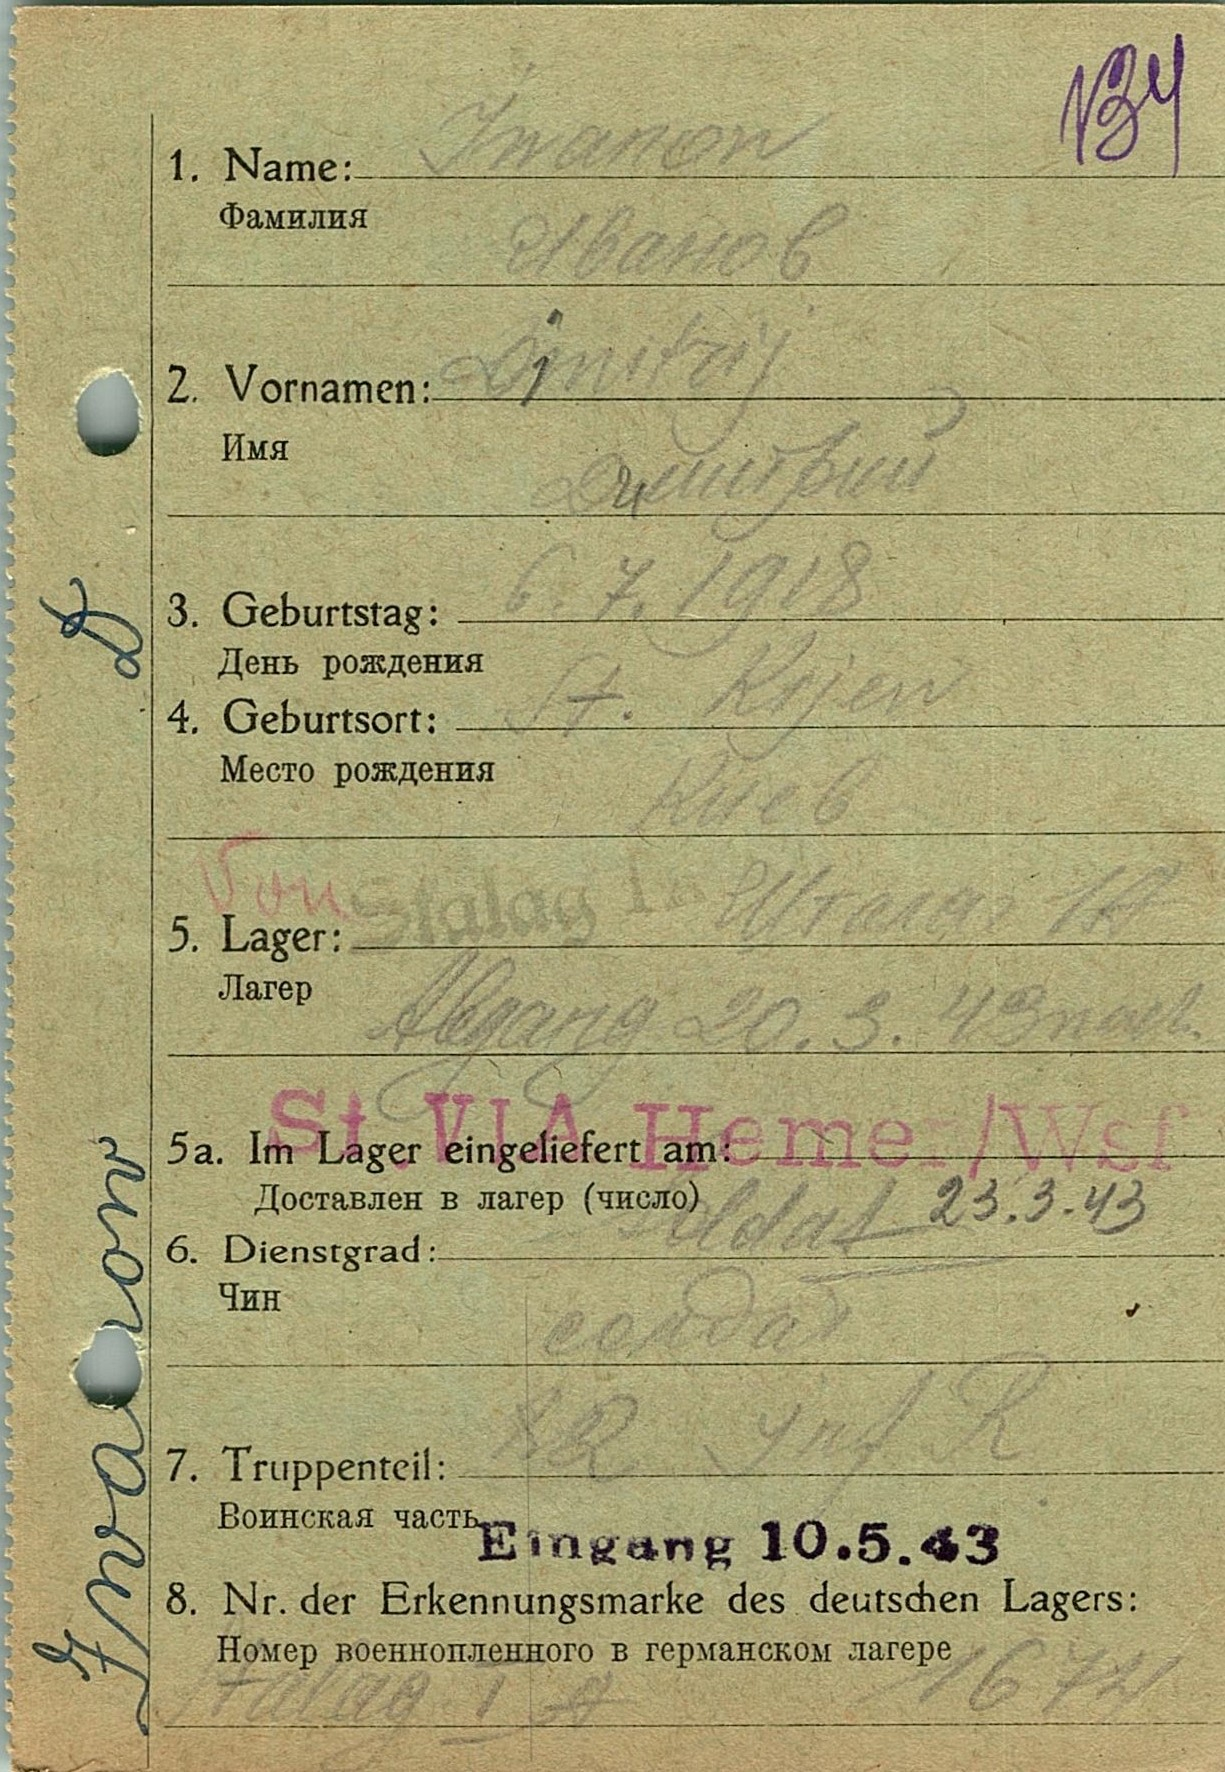 134
Iwanow
1. Name:
Фамилия
Иванов
Dmitrij
2. Vornamen:
Имя
Дмитрий
3. Geburtstag: 6.7.1918
День рождения
4. Geburtsort: St. Kijew
Место рождения
Киев
Von Stalag I Шталаг IA
5. Lager:
Лагер
Abgang 20.3.43 nach
St. VI A Hemer/Wsf
5a. Im Lager eingeliefert am:
Доставлен в лагер (число) 23.3.43
Soldat
6. Dienstgrad:
Чин
солдат
Inf R
7. Truppenteil:
Воинская часть
Eingang 10.5.43
8. Nr. der Erkennungsmarke des deutschen Lagers:
Номер военнопленного в германском лагере
Stalag I A
Iwanow D